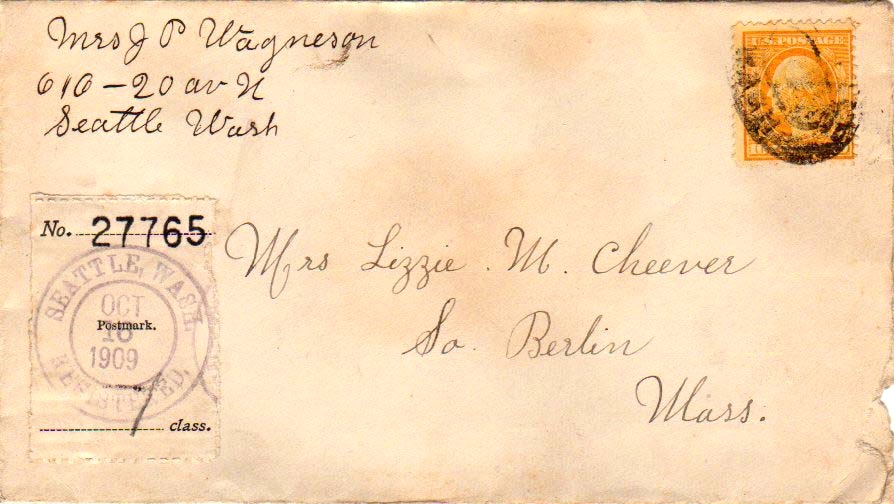 Mrs J P Wagneson
616-20 av N
Seattle Wash
U.S. POSTAGE
No. 27765
SEATTLE, WASH.
OCT
Postmark.
16
1909
REGISTERED.
1 class.
Mrs Lizzie. M. Cheever
So. Berlin
Mass.